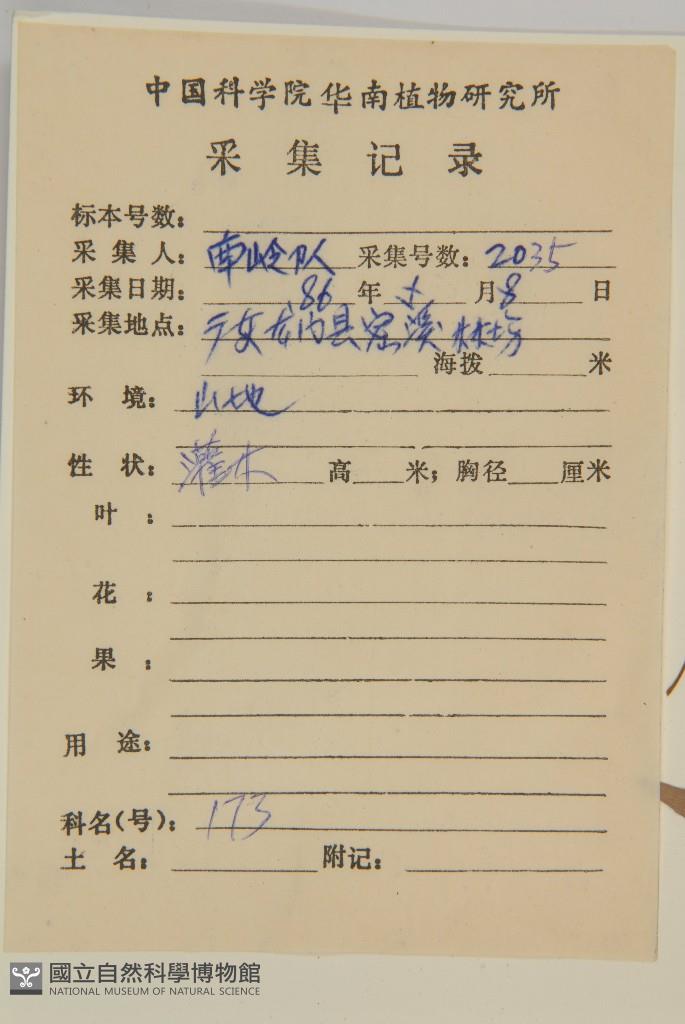 中国科学院华南植物研究所
采集记录
标本号数：
采集人：南岭队 采集号数：2035
采集日期：86年 月8日
采集地点：广东龙门县密溪林场
海拨 米
环境：山地
性状：灌木 高 米；胸径 厘米
叶：
花：
果：
用途：
科名(号)：173
土名： 附记：
國立自然科學博物館
NATIONAL MUSEUM OF NATURAL SCIENCE